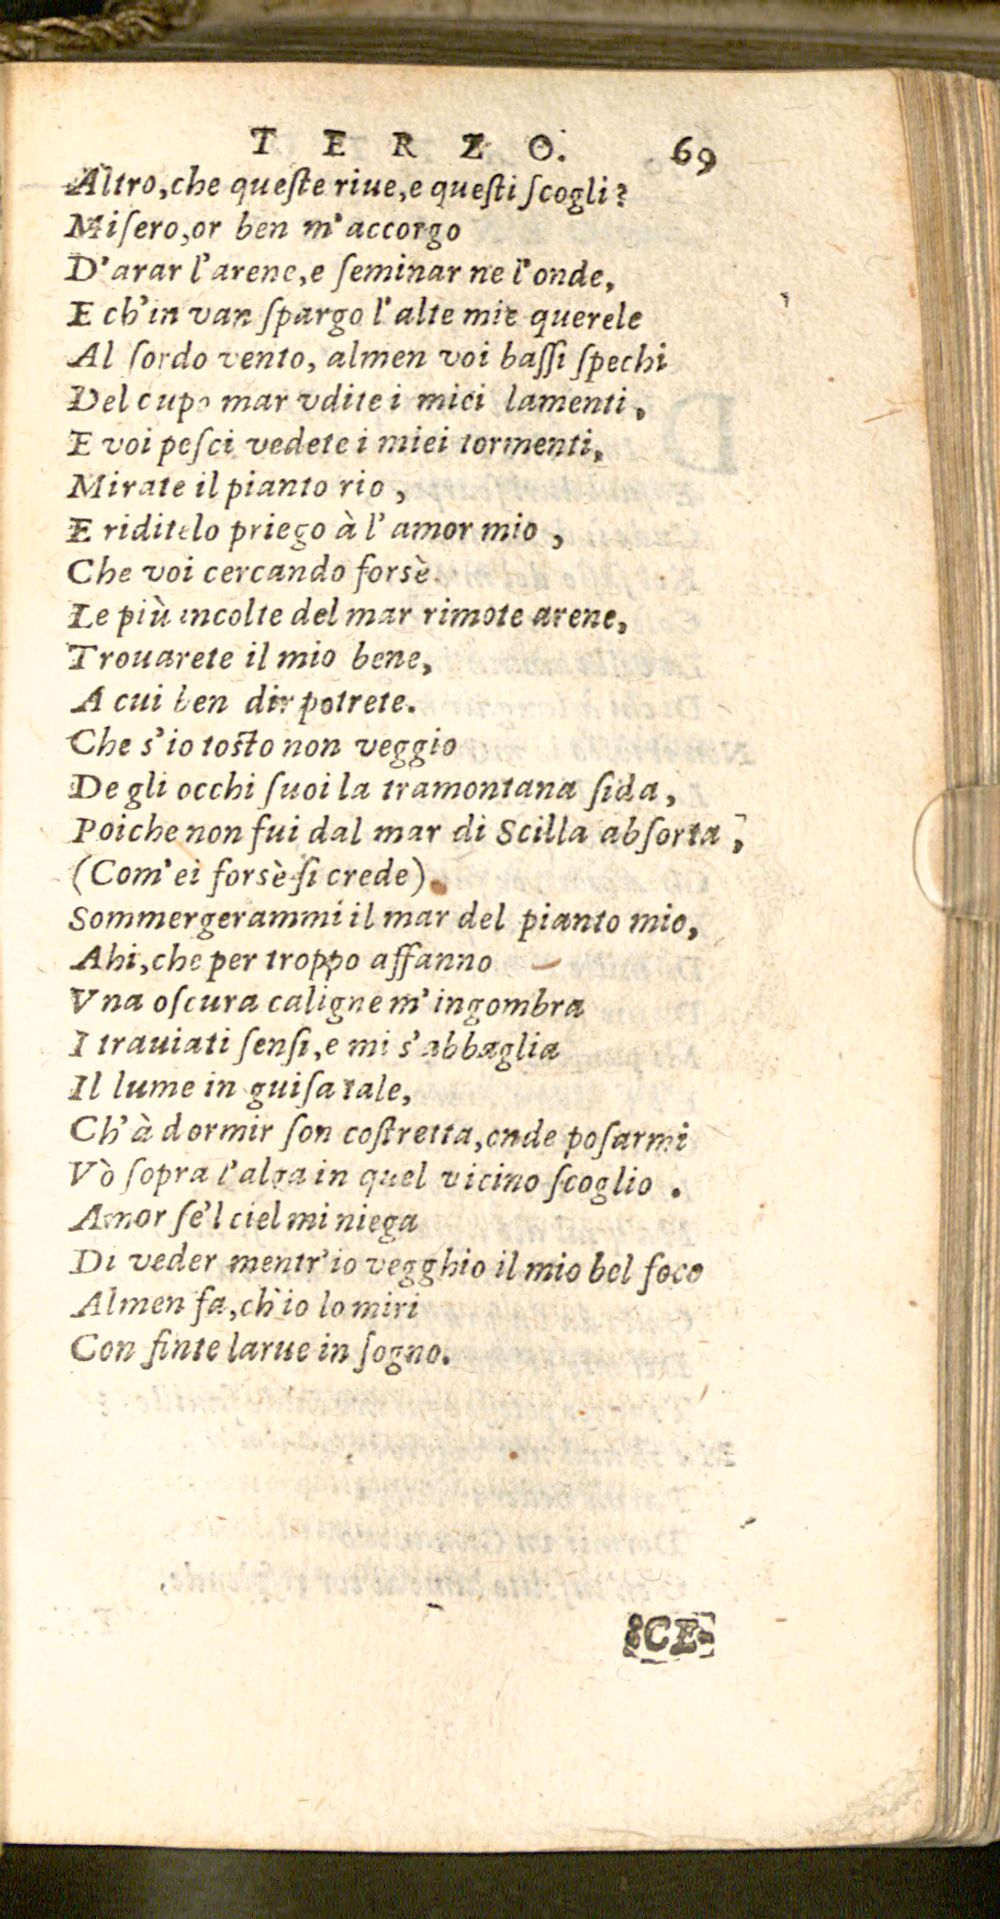 TERZO. 69
Altro,che queſte riue,e queſti ſcogli?
Miſero,or ben m'accorgo
D'arar l'arene,e ſeminar ne l'onde,
E ch'in van ſpargo l'alte mie querele
Al ſordo vento, almen voi baſſi ſpechi
Del cupo mar vdite i miei lamenti,
E voi peſci vedete i miei tormenti,
Mirate il pianto rio,
E riditelo priego à l'amor mio,
Che voi cercando forsè
Le più incolte del mar rimote arene,
Trouarete il mio bene,
A cui ben dir potrete.
Che s'io toſto non veggio
De gli occhi ſuoi la tramontana fida,
Poiche non fui dal mar di Scilla abſorta,
(Com'ei forsè ſi crede)
Sommergerammi il mar del pianto mio,
Ahi,che per troppo affanno
Vna oſcura caligne m'ingombra
I trauiati ſenſi,e mi s'abbaglia
Il lume in guiſa tale,
Ch'à dormir ſon coſtretta,onde poſarmi
Vò ſopra l'alga in quel vicino ſcoglio.
Amor ſe'l ciel mi niega
Di veder mentr'io vegghio il mio bel foco
Almen fa,ch'io lo miri
Con finte larue in ſogno.
CE-